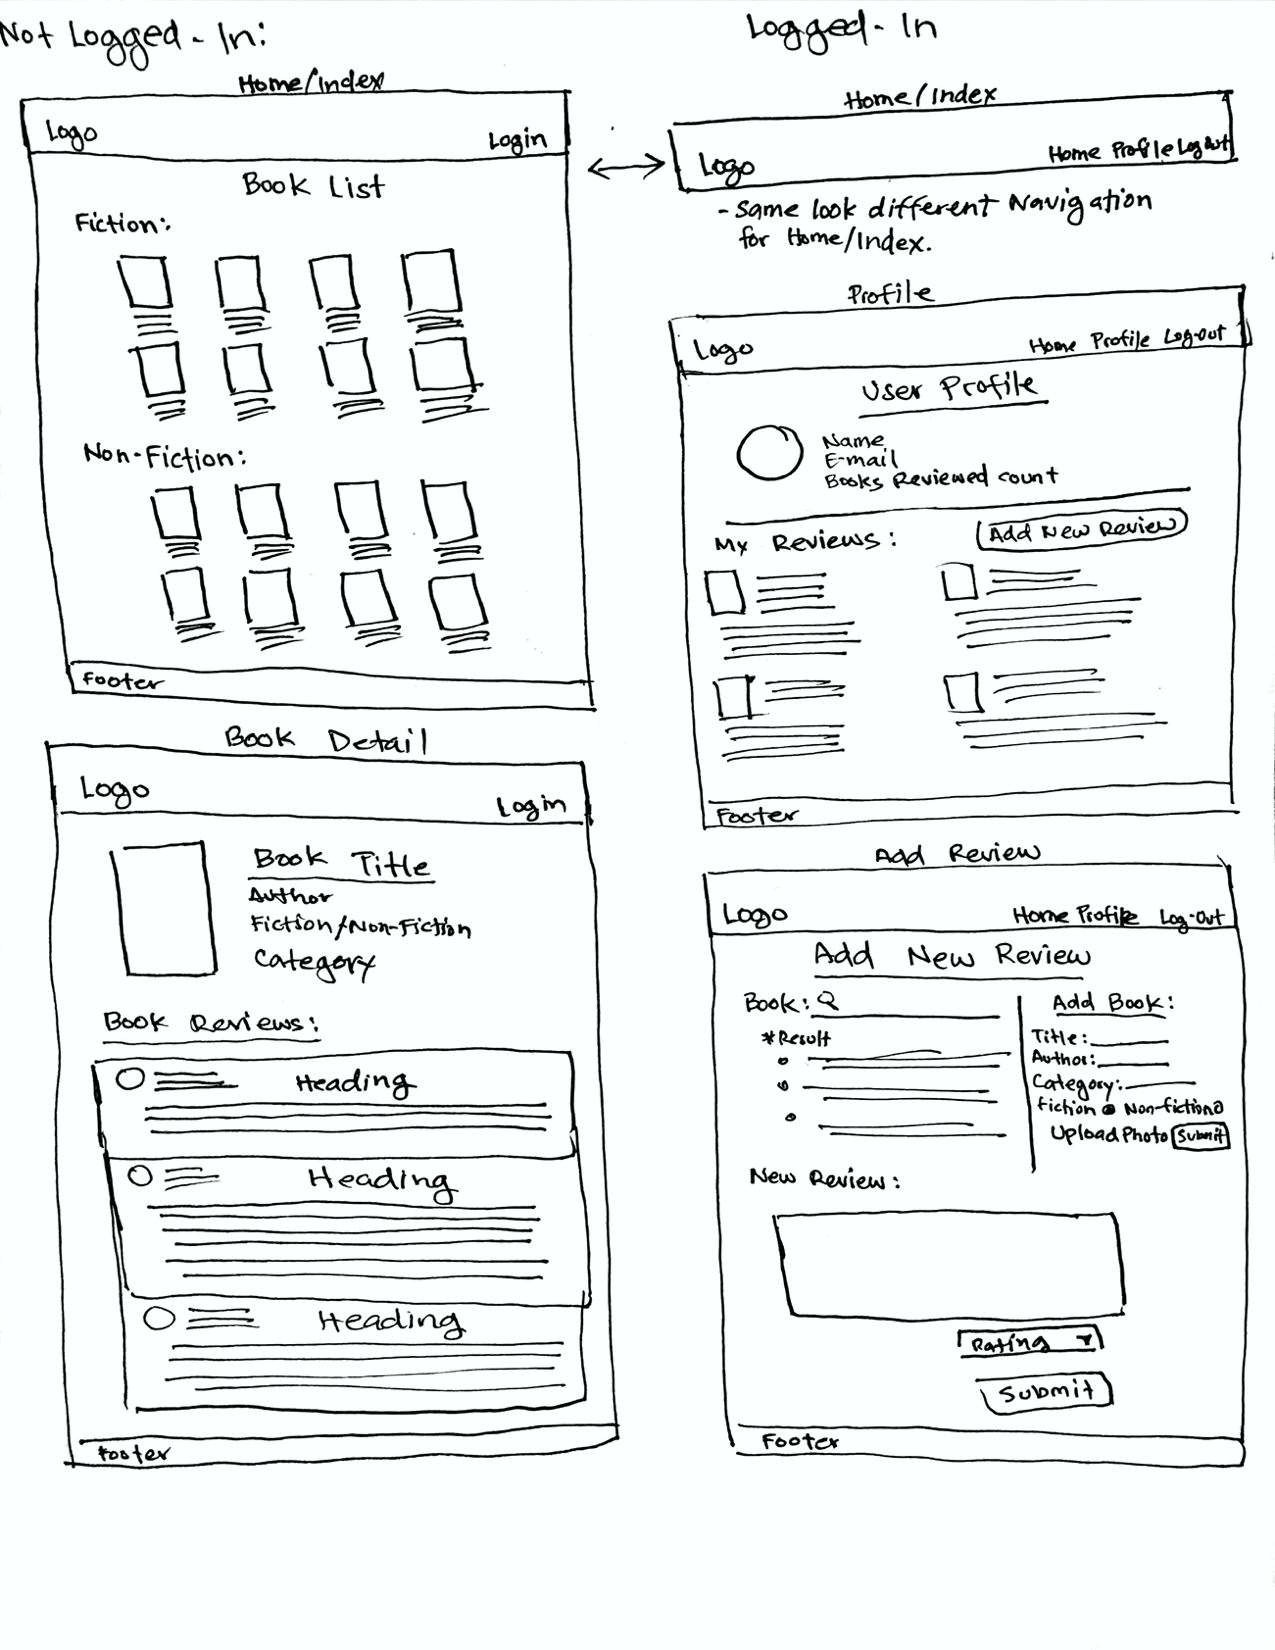 Not Logged-In:
Home/Index
Logo
Login
Book List
Fiction:
Non-Fiction:
Footer
Book Detail
Logo
Login
Book Title
Author
Fiction/Non-Fiction
Category
Book Reviews:
Heading
Heading
Heading
Footer
Logged-In
Home/Index
Logo
Home Profile Log Out
- Same look different Navigation
for Home/Index.
Profile
Logo
Home Profile Log-out
User Profile
Name
E-mail
Books Reviewed count
My Reviews:
Add New Review
Footer
Add Review
Logo
Home Profile Log-Out
Add New Review
Book:
*Result
Add Book:
Title:
Author:
Category:
Fiction Non-fiction
Upload Photo Submit
New Review:
Rating
Submit
Footer